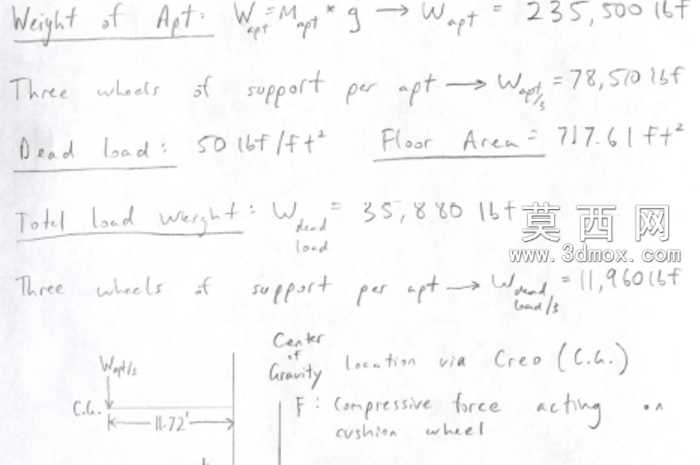 Weight of Apt: W_apt = M_apt * g → W_apt = 235,500 lbf
Three wheels of support per apt → W_apt/3 = 78,510 lbf
Dead load: 50 lbf/ft² Floor Area = 717.61 ft²
Total load weight: W_dead load = 35,880 lbf
莫西网
www.3dmox.com
Three wheels of support per apt → W_dead load/3 = 11,960 lbf
Center of Gravity location via Creo (C.G.)
W_apt/3
C.G.
11.72'
F: Compressive force acting on
cushion wheel